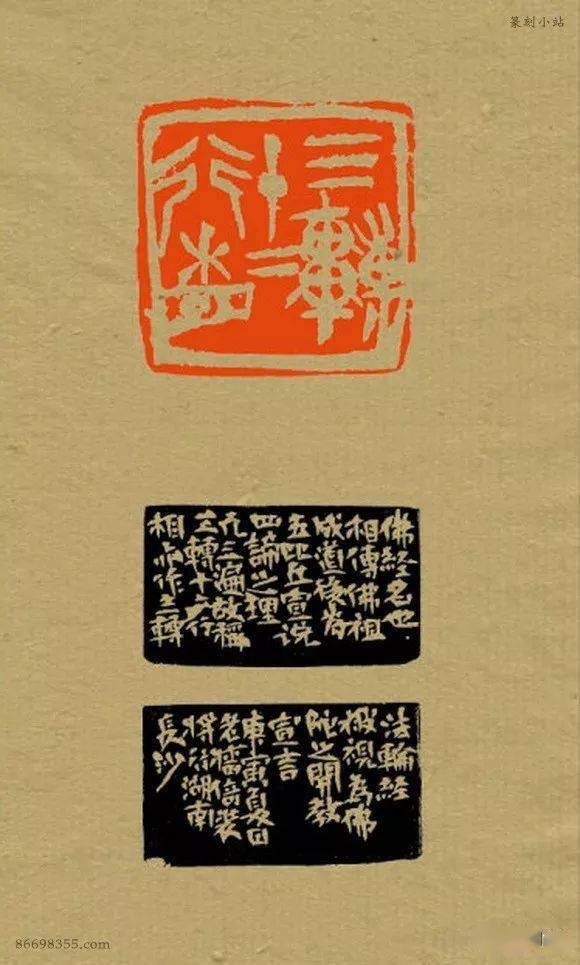 篆刻小站
三轉
十二
行相
佛经名也
相傳佛祖
成道後为
五比丘宣说
四諭之理
凡三遍故稱
三轉十二行
相亦作三轉
法輪経
被視為佛
陀之開教
宣言
庚寅夏日
老墻信裝
将於湖南
長沙
86698355.com